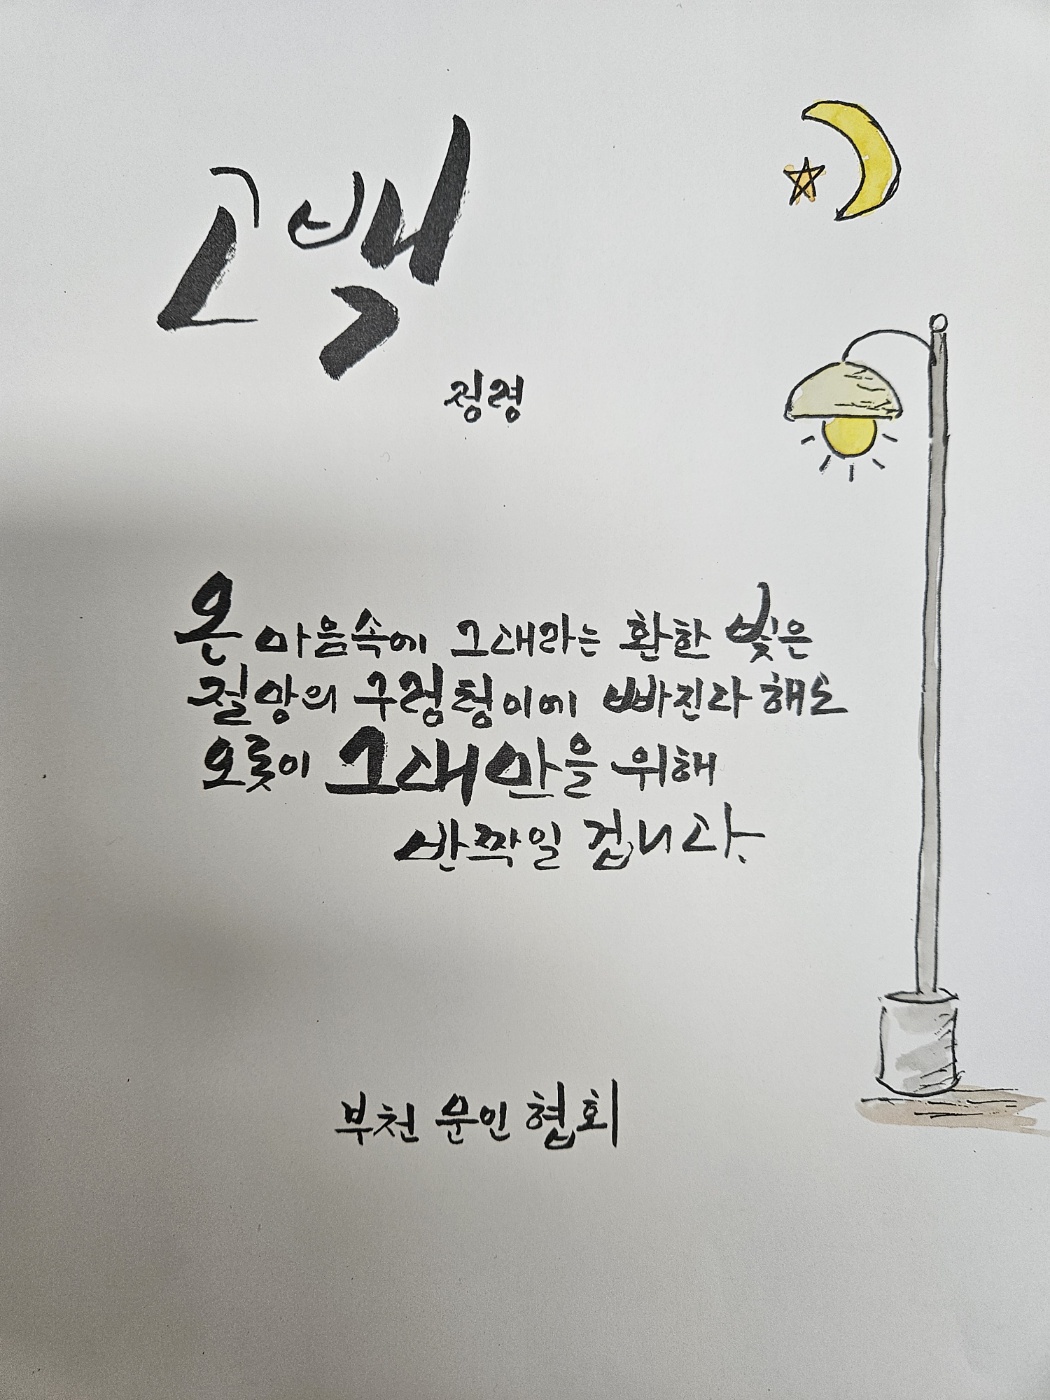 고백
정령
온 마음속에 그대라는 환한 빛은
절망의 구렁텅이에 빠진다 해도
오롯이 그대만을 위해
반짝일 겁니다.
부천 문인 협회